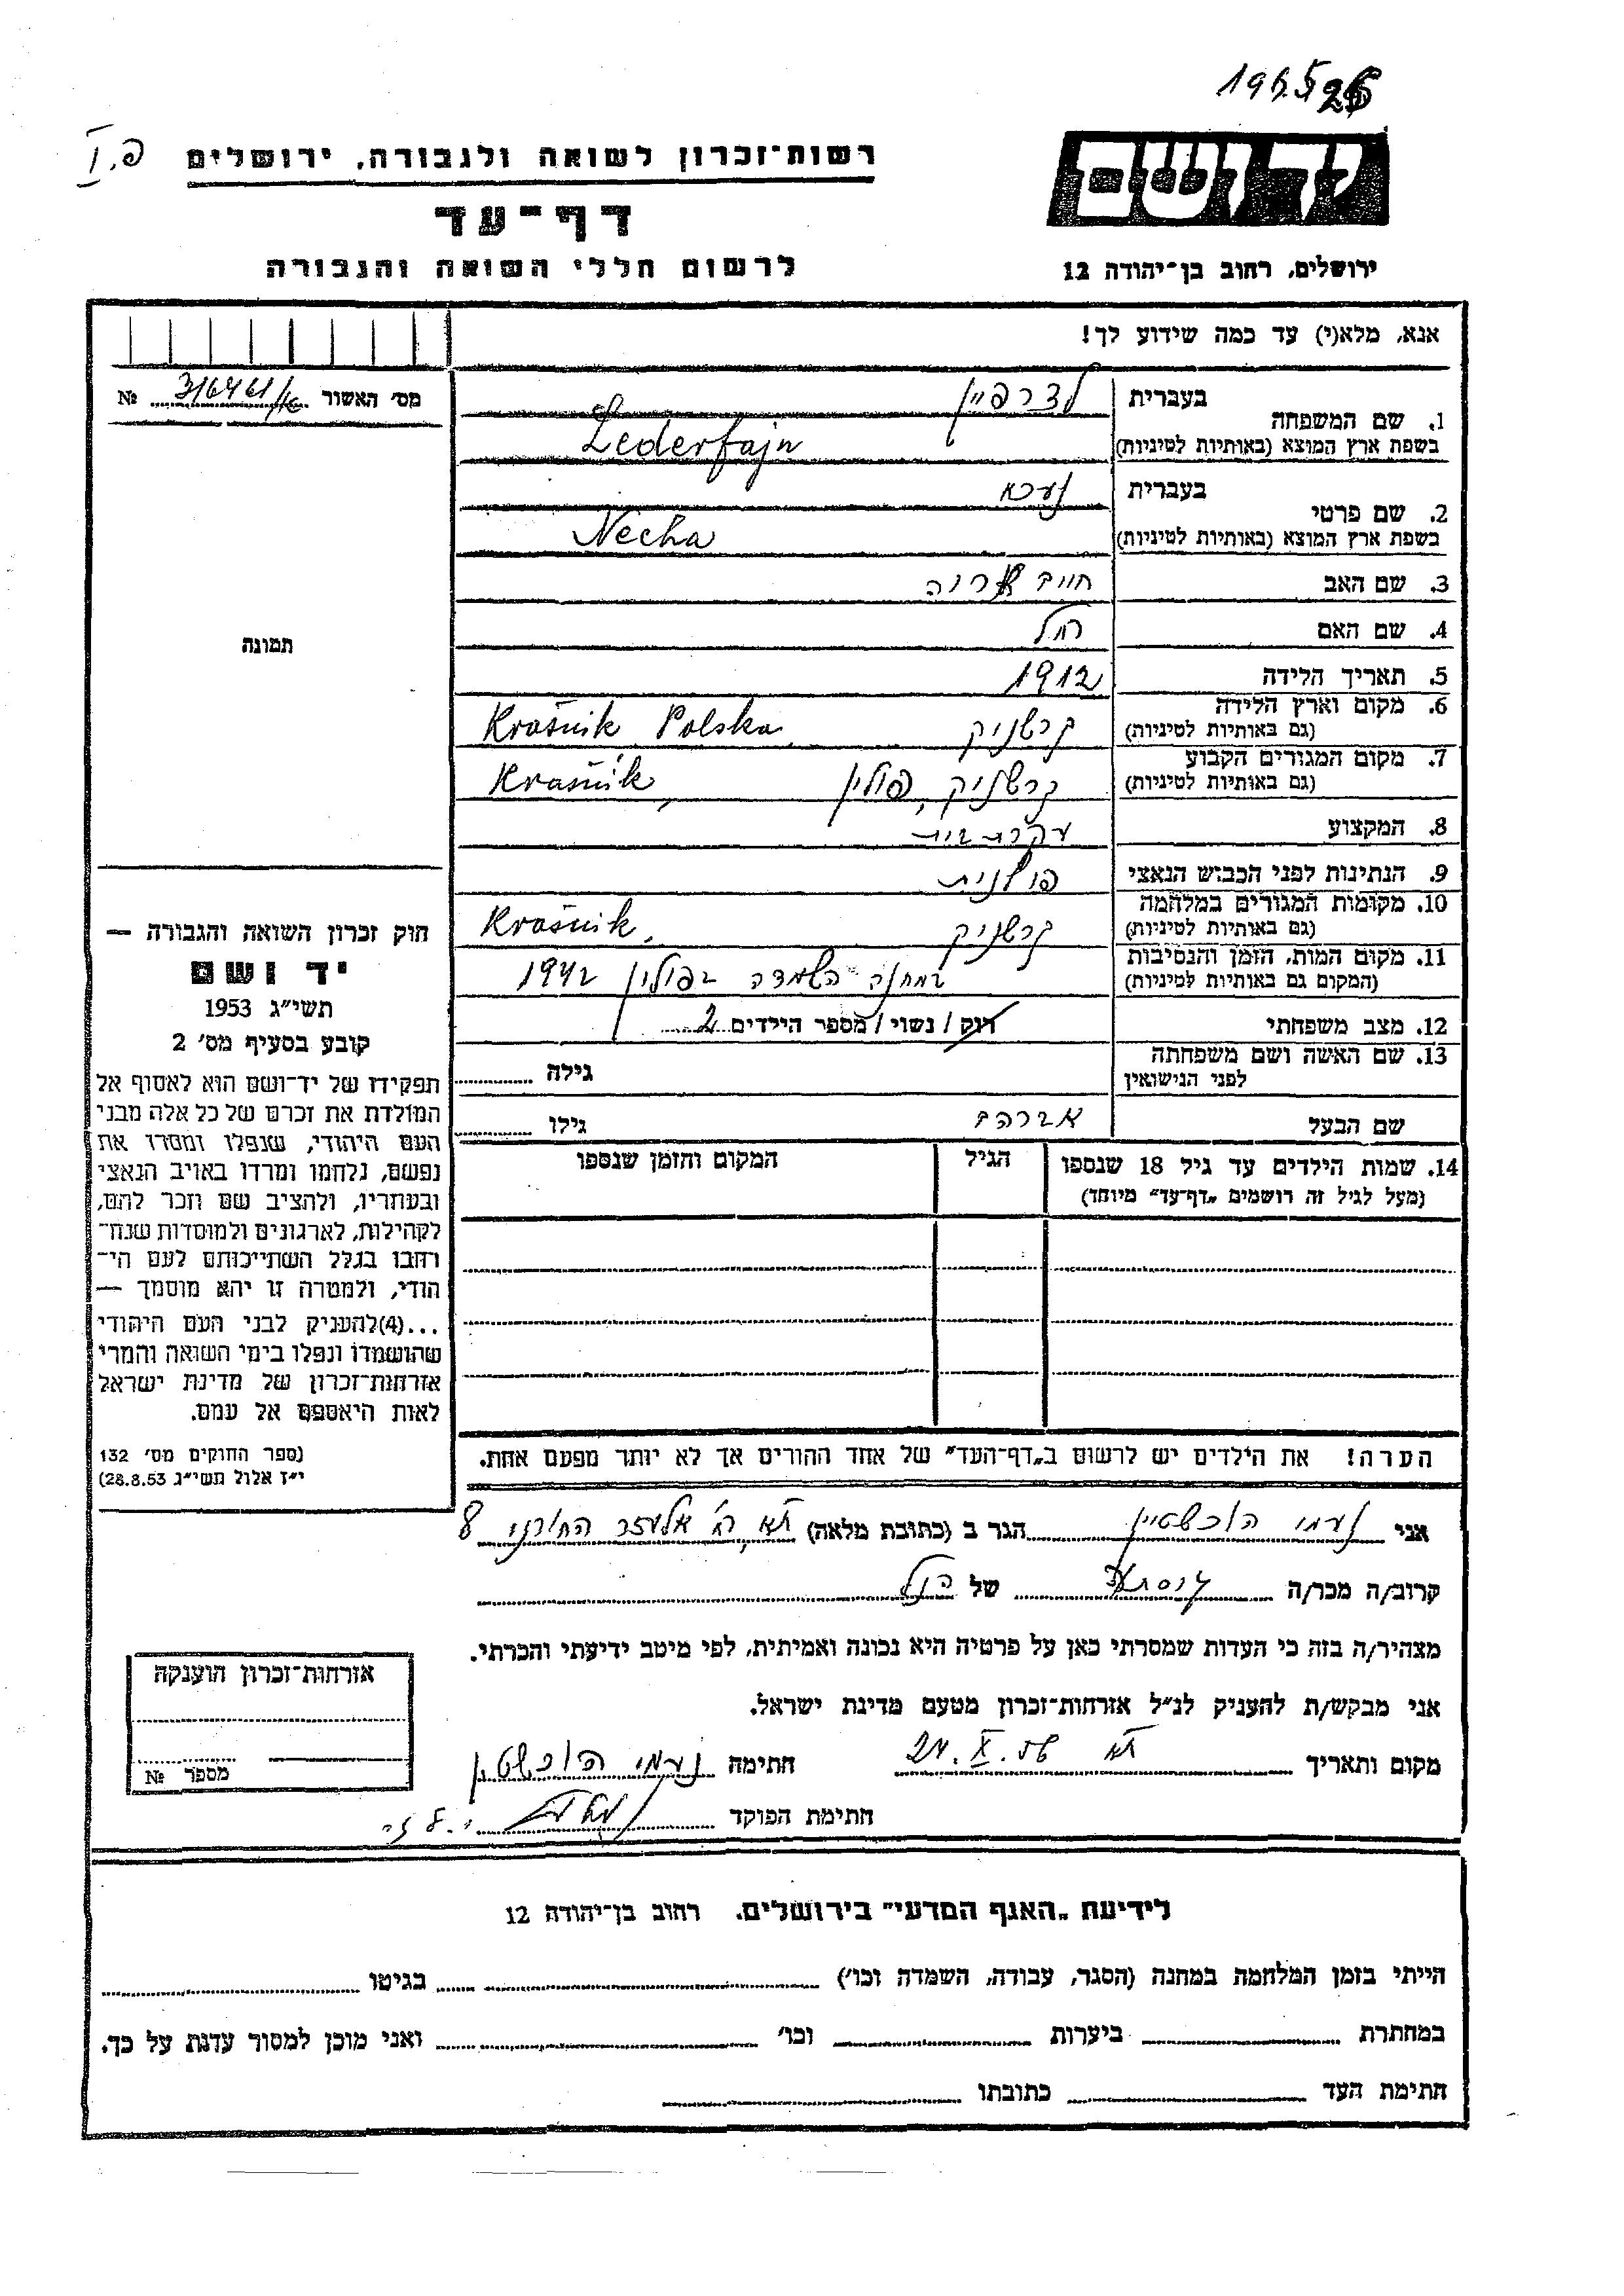 196526
רשות־זכרון לשואה ולגבורה, ירושלים
פ. I
יד ושם
דף־עד
לרשום חללי השואה והגבורה
ירושלים, רחוב בן־יהודה 12
אנא, מלא(י) עד כמה שידוע לך!
מס' האשור № 316461
בעברית לדרפיין
1. שם המשפחה
בשפת ארץ המוצא (באותיות לטיניות) Lederfajn
בעברית נעכא
2. שם פרטי
בשפת ארץ המוצא (באותיות לטיניות) Necha
3. שם האב חיים
4. שם האם רחל
תמונה
5. תאריך הלידה 1912
6. מקום וארץ הלידה קרשניק Kraśnik Polska
(גם באותיות לטיניות)
7. מקום המגורים הקבוע קרשניק, פולין Kraśnik,
(גם באותיות לטיניות)
8. המקצוע עקרת בית
9. הנתינות לפני הכבוש הנאצי פולנית
10. מקומות המגורים במלחמה קרשניק Kraśnik,
(גם באותיות לטיניות)
11. מקום המות, הזמן והנסיבות במחנה השמדה בפולין 1942
(המקום גם באותיות לטיניות)
12. מצב משפחתי רוק / נשוי / מספר הילדים 2
13. שם האשה ושם משפחתה גילה
לפני הנישואין
שם הבעל אברהם גילו
14. שמות הילדים עד גיל 18 שנספו הגיל המקום והזמן שנספו
(מעל לגיל זה רושמים „דף־עד" מיוחד)
חוק זכרון השואה והגבורה —
יד ושם
תשי"ג 1953
קובע בסעיף מס' 2
תפקידו של יד־ושם הוא לאסוף אל
המולדת את זכרם של כל אלה מבני
העם היהודי, שנפלו ומסרו את
נפשם, נלחמו ומרדו באויב הנאצי
ובעוזריו, ולהציב שם וזכר להם,
לקהילות, לארגונים ולמוסדות שנח־
רחבו בגלל השתייכותם לעם הי־
הודי, ולמטרה זו יהא מוסמך —
...(4)להעניק לבני העם היהודי
שהושמדו ונפלו בימי השואה והמרי
אזרחות־זכרון של מדינת ישראל
לאות היאספם אל עמם.
(ספר החוקים מס' 132
י"ז אלול תשי"ג 28.8.53)
הערה! את הילדים יש לרשום ב„דף־העד" של אחד ההורים אך לא יותר מפעם אחת.
אני נעמי הוכשטיין הגר ב (כתובת מלאה) תא, רח' אלעזר החורני 8
קרוב/ה מכר/ה של הנ"ל
מצהיר/ה בזה כי העדות שמסרתי כאן על פרטיה היא נכונה ואמיתית, לפי מיטב ידיעתי והכרתי.
אני מבקש/ת להעניק לנ"ל אזרחות־זכרון מטעם מדינת ישראל.
מקום ותאריך תא 21.X.56 חתימה נעמי הוכשטיין
חתימת הפוקד
אזרחות־זכרון הוענקה
מספר №
לידיעת „האגף המדעי" בירושלים, רחוב בן־יהודה 12
הייתי בזמן המלחמה במחנה (הסגר, עבודה, השמדה וכו') בגיטו
במחתרת ביערות וכו' ואני מוכן למסור עדות על כך.
חתימת העד כתובתו